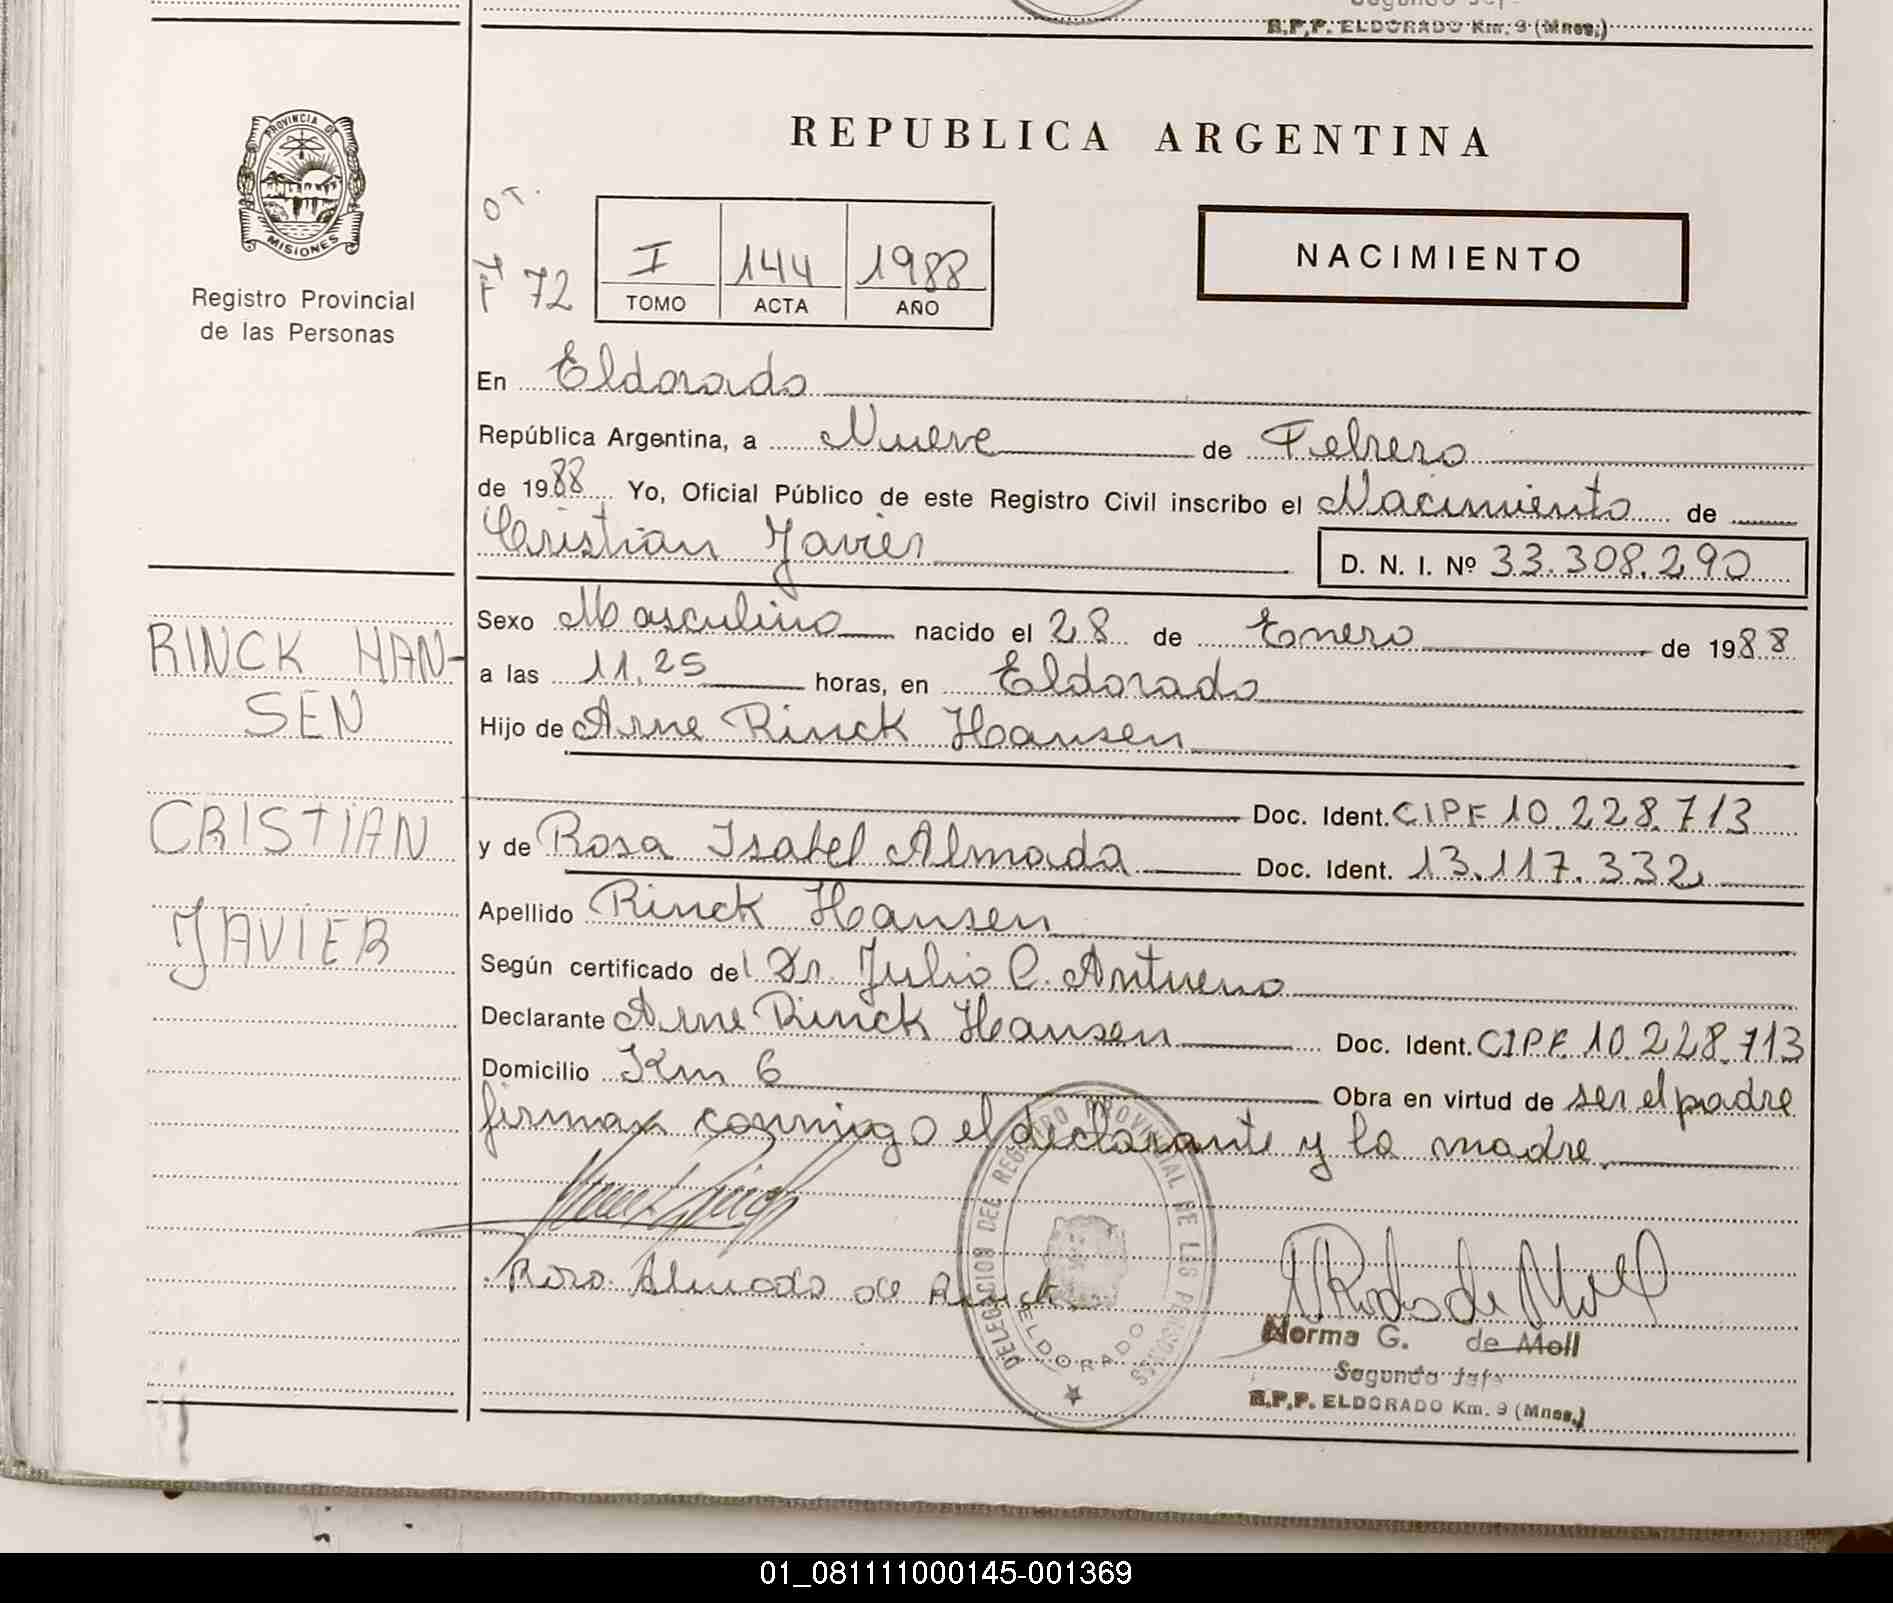 Segundo Jef
R.P.P. ELDORADO Km. 9 (Mnes.)
PROVINCIA DE
MISIONES
Registro Provincial
de las Personas
REPUBLICA ARGENTINA
OT.
F 72
I 144 1988
TOMO ACTA AÑO
NACIMIENTO
En Eldorado
República Argentina, a Nueve de Febrero
de 1988 Yo, Oficial Público de este Registro Civil inscribo el Nacimiento de
Cristian Javier D. N. I. Nº 33.308.290
RINCK HAN-
SEN
CRISTIAN
JAVIER
Sexo Masculino nacido el 28 de Enero de 1988
a las 11.25 horas, en Eldorado
Hijo de Arne Rinck Hansen
Doc. Ident. CIPF 10.228.713
y de Rosa Isabel Almada Doc. Ident. 13.117.332
Apellido Rinck Hansen
Según certificado del Dr. Julio C. Antueno
Declarante Arne Rinck Hansen Doc. Ident. CIPF. 10.228.713
Domicilio Km 6 Obra en virtud de ser el padre
firman conmigo el declarante y la madre.
Rosa Almada de Rinck
DELEGACION DEL REGISTRO PROVINCIAL DE LAS PERSONAS
ELDORADO
Norma G. de Moll
Segundo Jefe
R.P.P. ELDORADO Km. 9 (Mnes.)
01_081111000145-001369